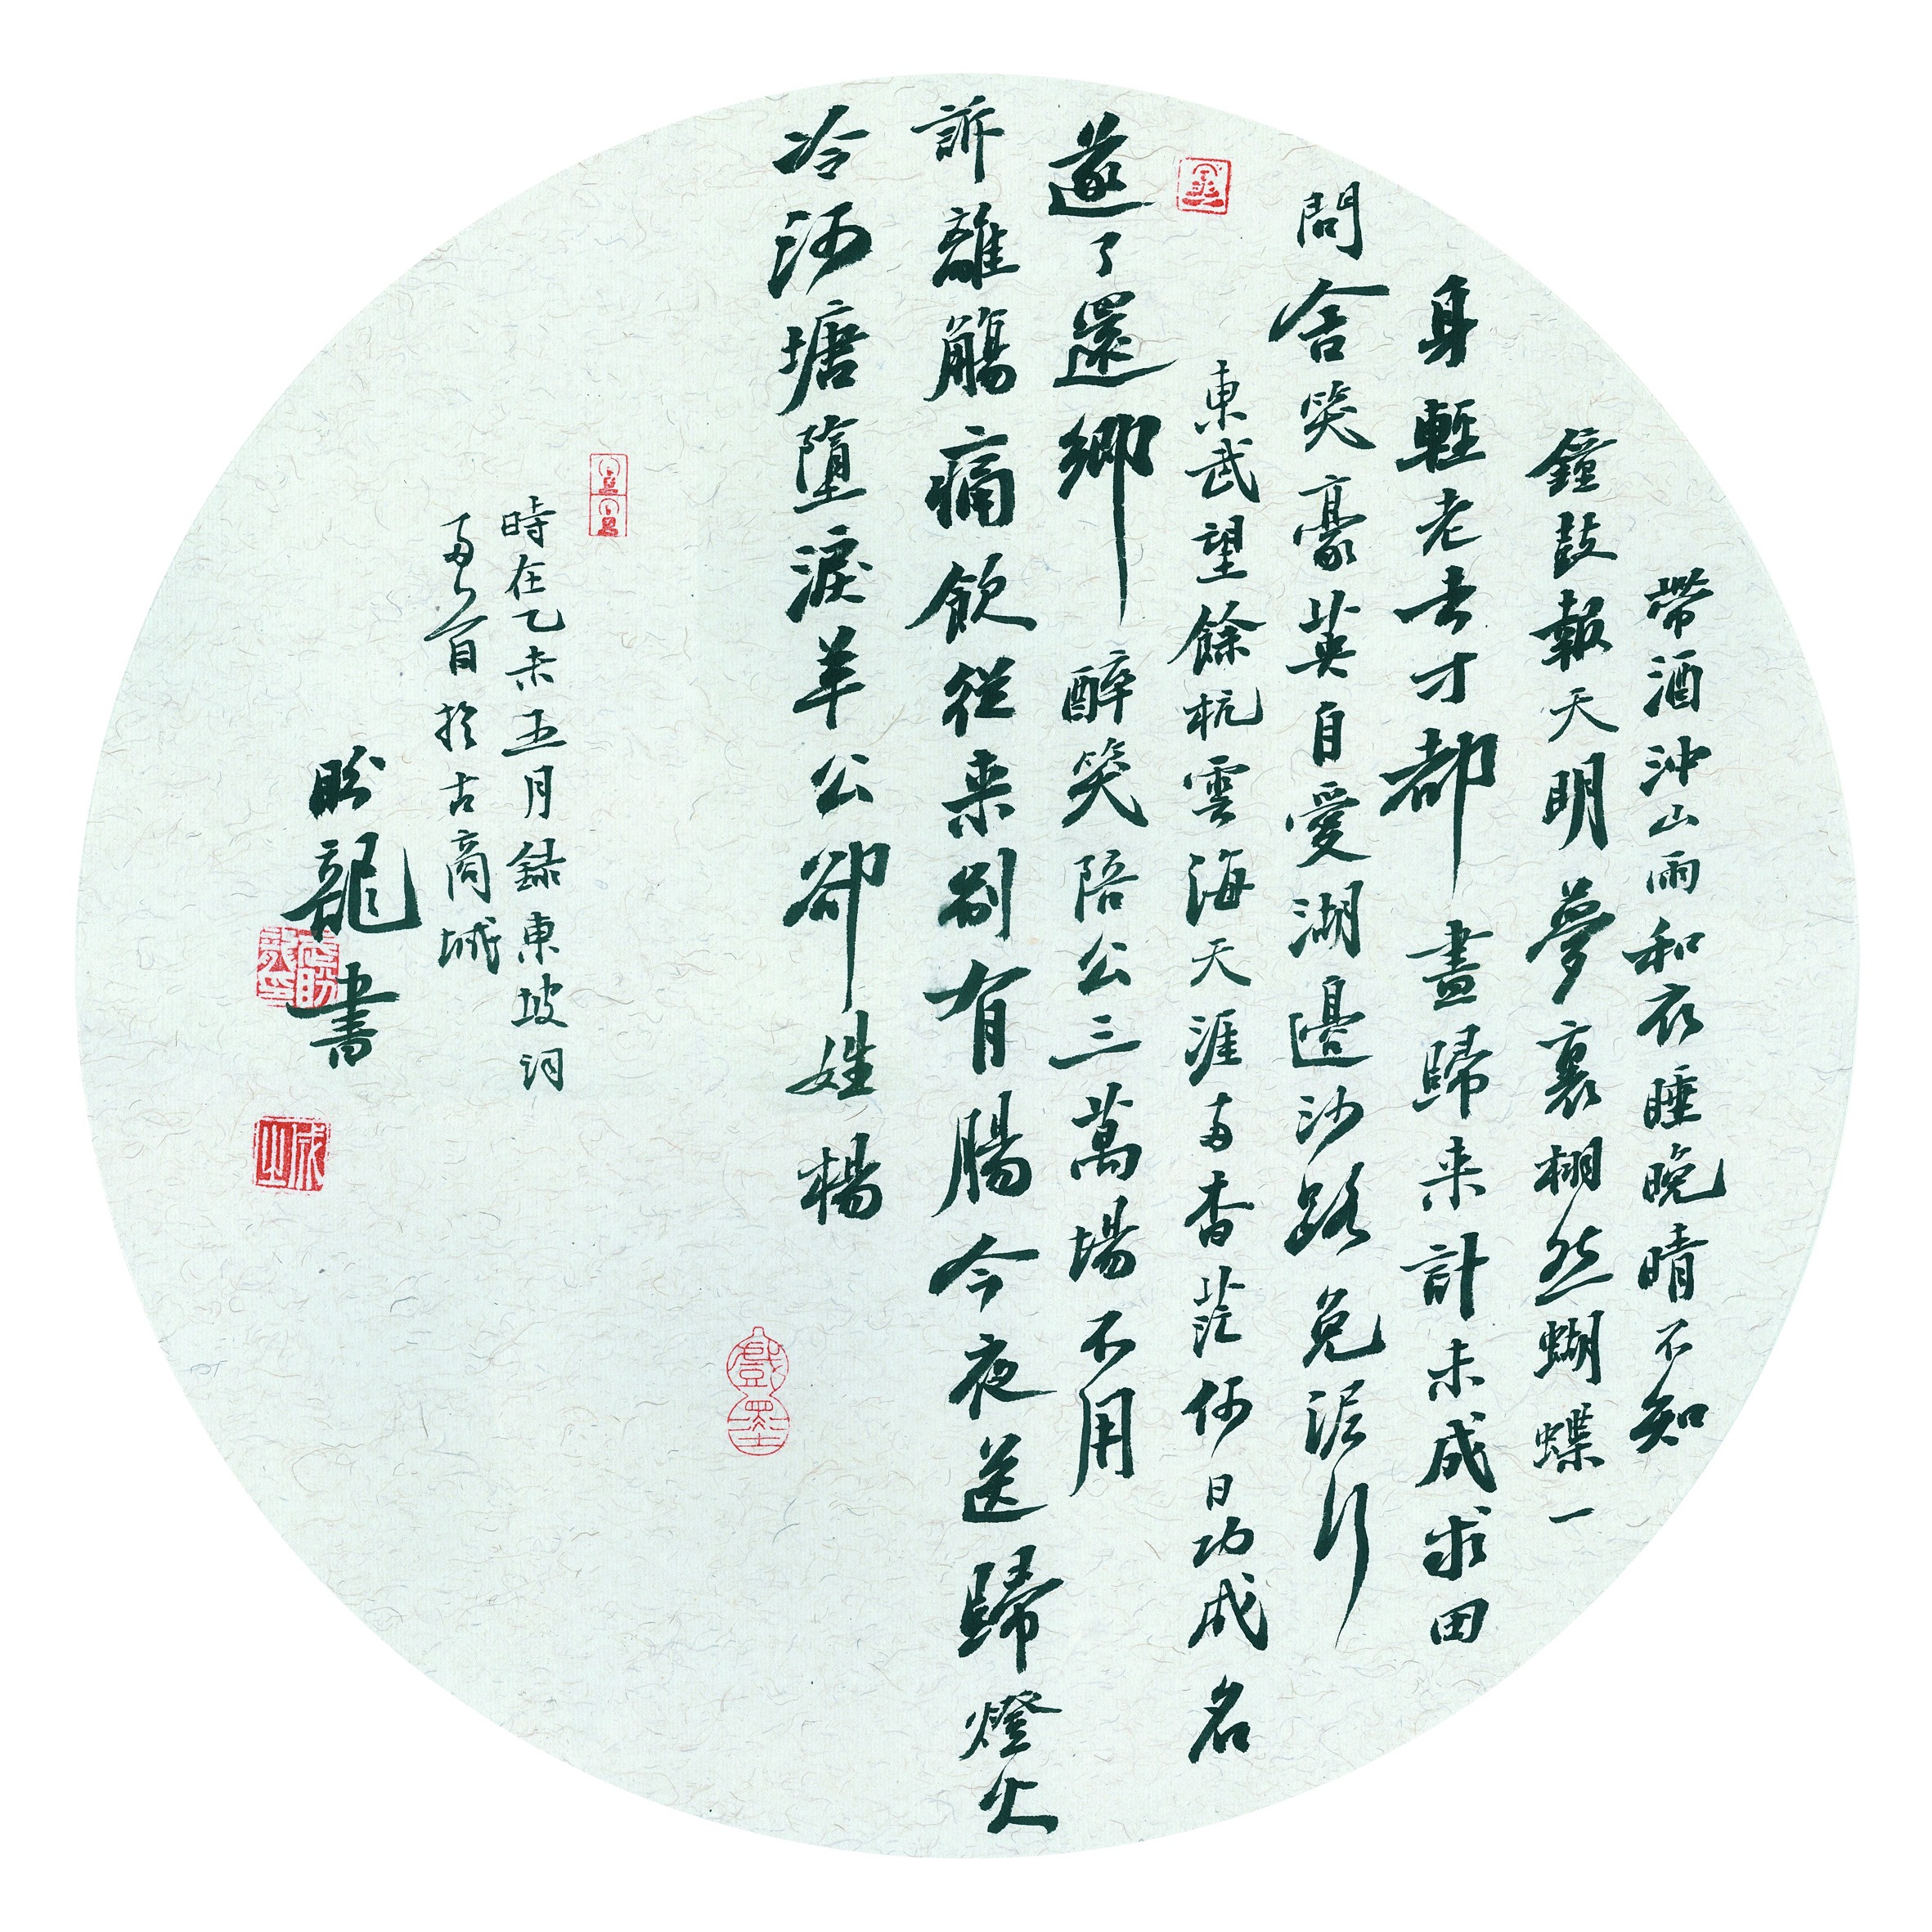 帶酒沖山雨和衣睡晚晴不知
鐘鼓報天明夢裏栩然蝴蝶一
身輕老去才都盡歸来計未成求田
問舍笑豪英自愛湖邊沙路免泥行
東武望餘杭雲海天涯兩杳茫何日功成名
遂了還鄉醉笑陪公三萬場不用
訴離觴痛飲從来別有腸今夜送歸燈火
冷河塘墮淚羊公卻姓楊
時在乙未五月録東坡词
兩首於古商城
盼龍書
戲墨